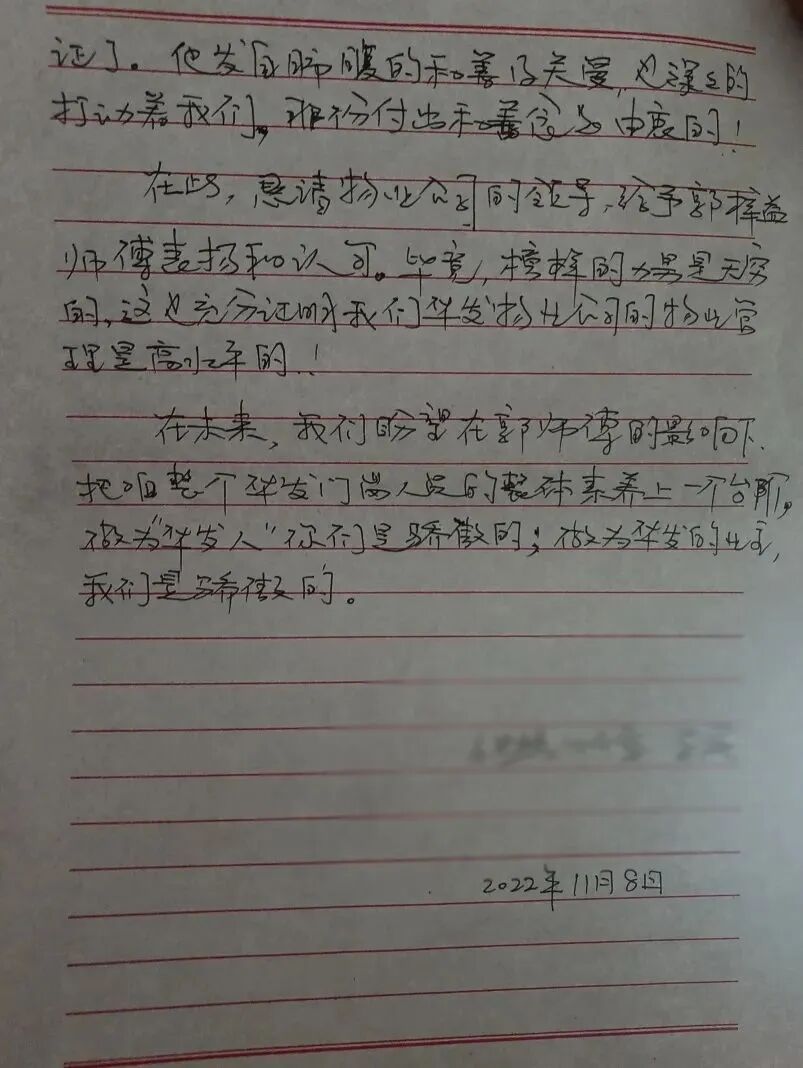 证了。他发自肺腹的和善及关爱,也深深的
打动着我们,那份付出和善念是由衷的!
在此,恳请物业公司的领导,给予郭梓益
师傅表扬和认可。毕竟,榜样的力量是无穷
的,这也充分证明我们华发物业公司的物业管
理是高水平的!
在未来,我们盼望在郭师傅的影响下,
把咱整个华发门岗人员的整体素养上一个台阶,
做为“华发人”你们是骄傲的;做为华发的业主,
我们是骄傲的。
2022年11月8日